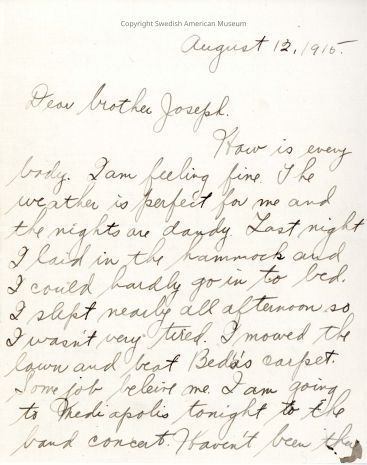 Copyright Swedish American Museum
August 12, 1915.
Dear brother Joseph.
How is every
body. I am feeling fine. The
weather is perfect for me and
the nights are dandy. Last night
I laid in the hammock and
I could hardly go in to bed.
I slept nearly all afternoon so
I wasn't very tired. I mowed the
lawn and beat Beda's carpet.
Some job beleive me. I am going
to Mediapolis tonight to the
band concert. Haven't been